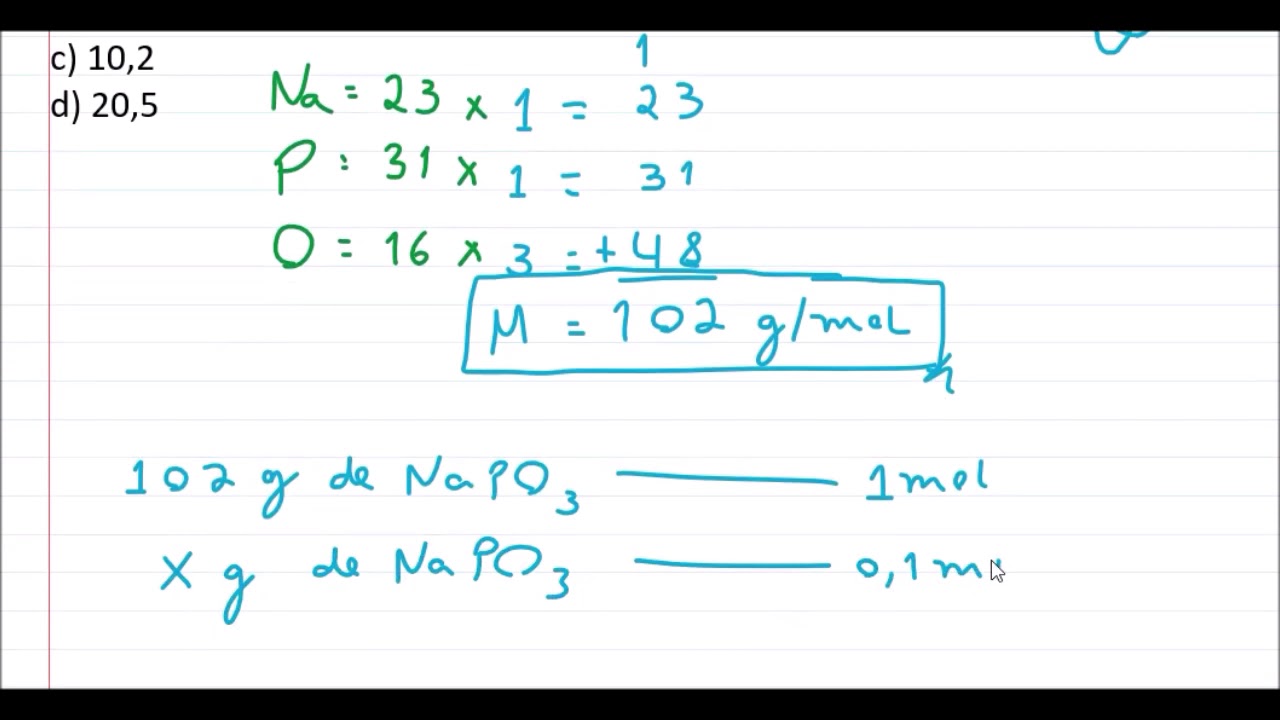 c) 10,2
d) 20,5
1
Na = 23 x 1 = 23
P : 31 x 1 = 31
O = 16 x 3 = + 48
M = 102 g/mol
102 g de NaPO3 ——— 1 mol
X g de NaPO3 ——— 0,1 m